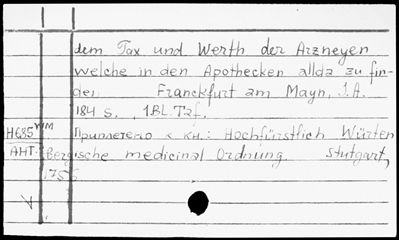 dem Tax und Werth der Arzneyen
welche in den Apothecken allda zu fin-
den. Franckfurt am Mayn, J.A.
184 S., 1Bl. Taf.
Приплетено к кн.: Hochfürstlich Würten
Bergische medicinal Ordnung. Stutgart,
175
АНТ.
V